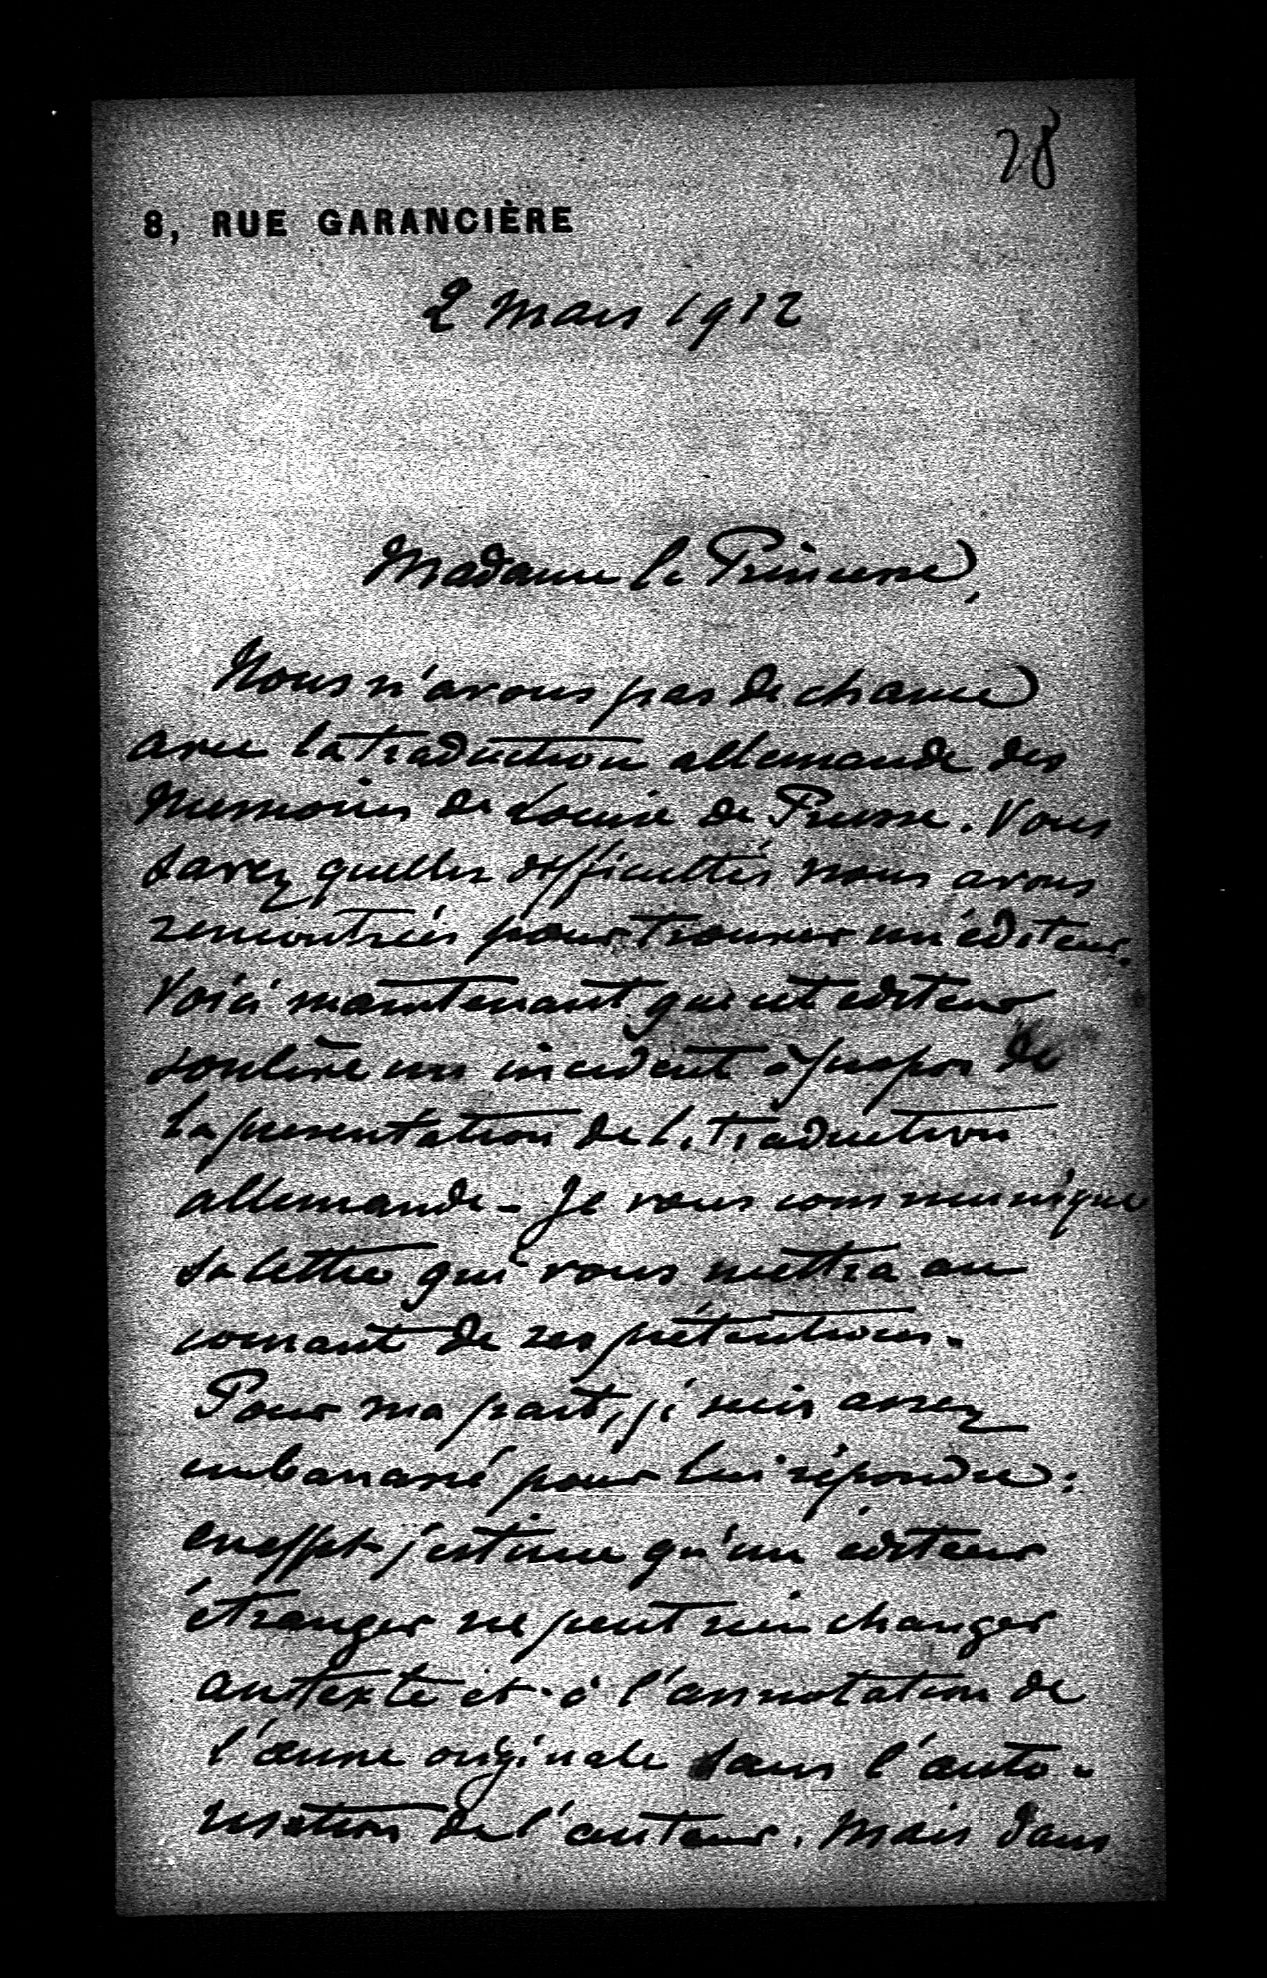 28
8, RUE GARANCIÈRE
2 mars 1912
Madame la Princesse,
Nous n'avons pas de chance
avec la traduction allemande des
Memoires de Louise de Prusse. Vous
savez quelles difficultés nous avons
rencontrées pour trouver un éditeur.
Voici maintenant que cet éditeur
soulève un incident à propos de
la presentation de la traduction
allemande. Je vous communique
sa lettre qui vous mettra au
courant de ses prétentions.
Pour ma part, je suis assez
embarrassé pour lui répondre :
en effet j'estime qu'un éditeur
étranger ne peut rien changer
au texte et à l'annotation de
l'œuvre originale sans l'auto-
risation de l'auteur. Mais dans